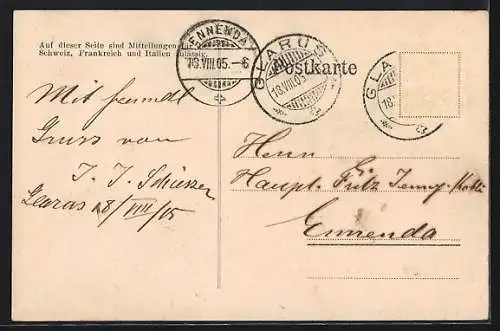 Auf dieser Seite sind Mitteilungen
Schweiz, Frankreich und Italien zulässig.
ENNENDA
18.VIII.05.–6
GLARUS
18.VIII.05
GLA
18.
Postkarte
Mit freundl
Gruss von
J. J. Schiesser
Glarus 18/VIII/05
Herrn
Haupt. Fritz Jenny-
Ennenda